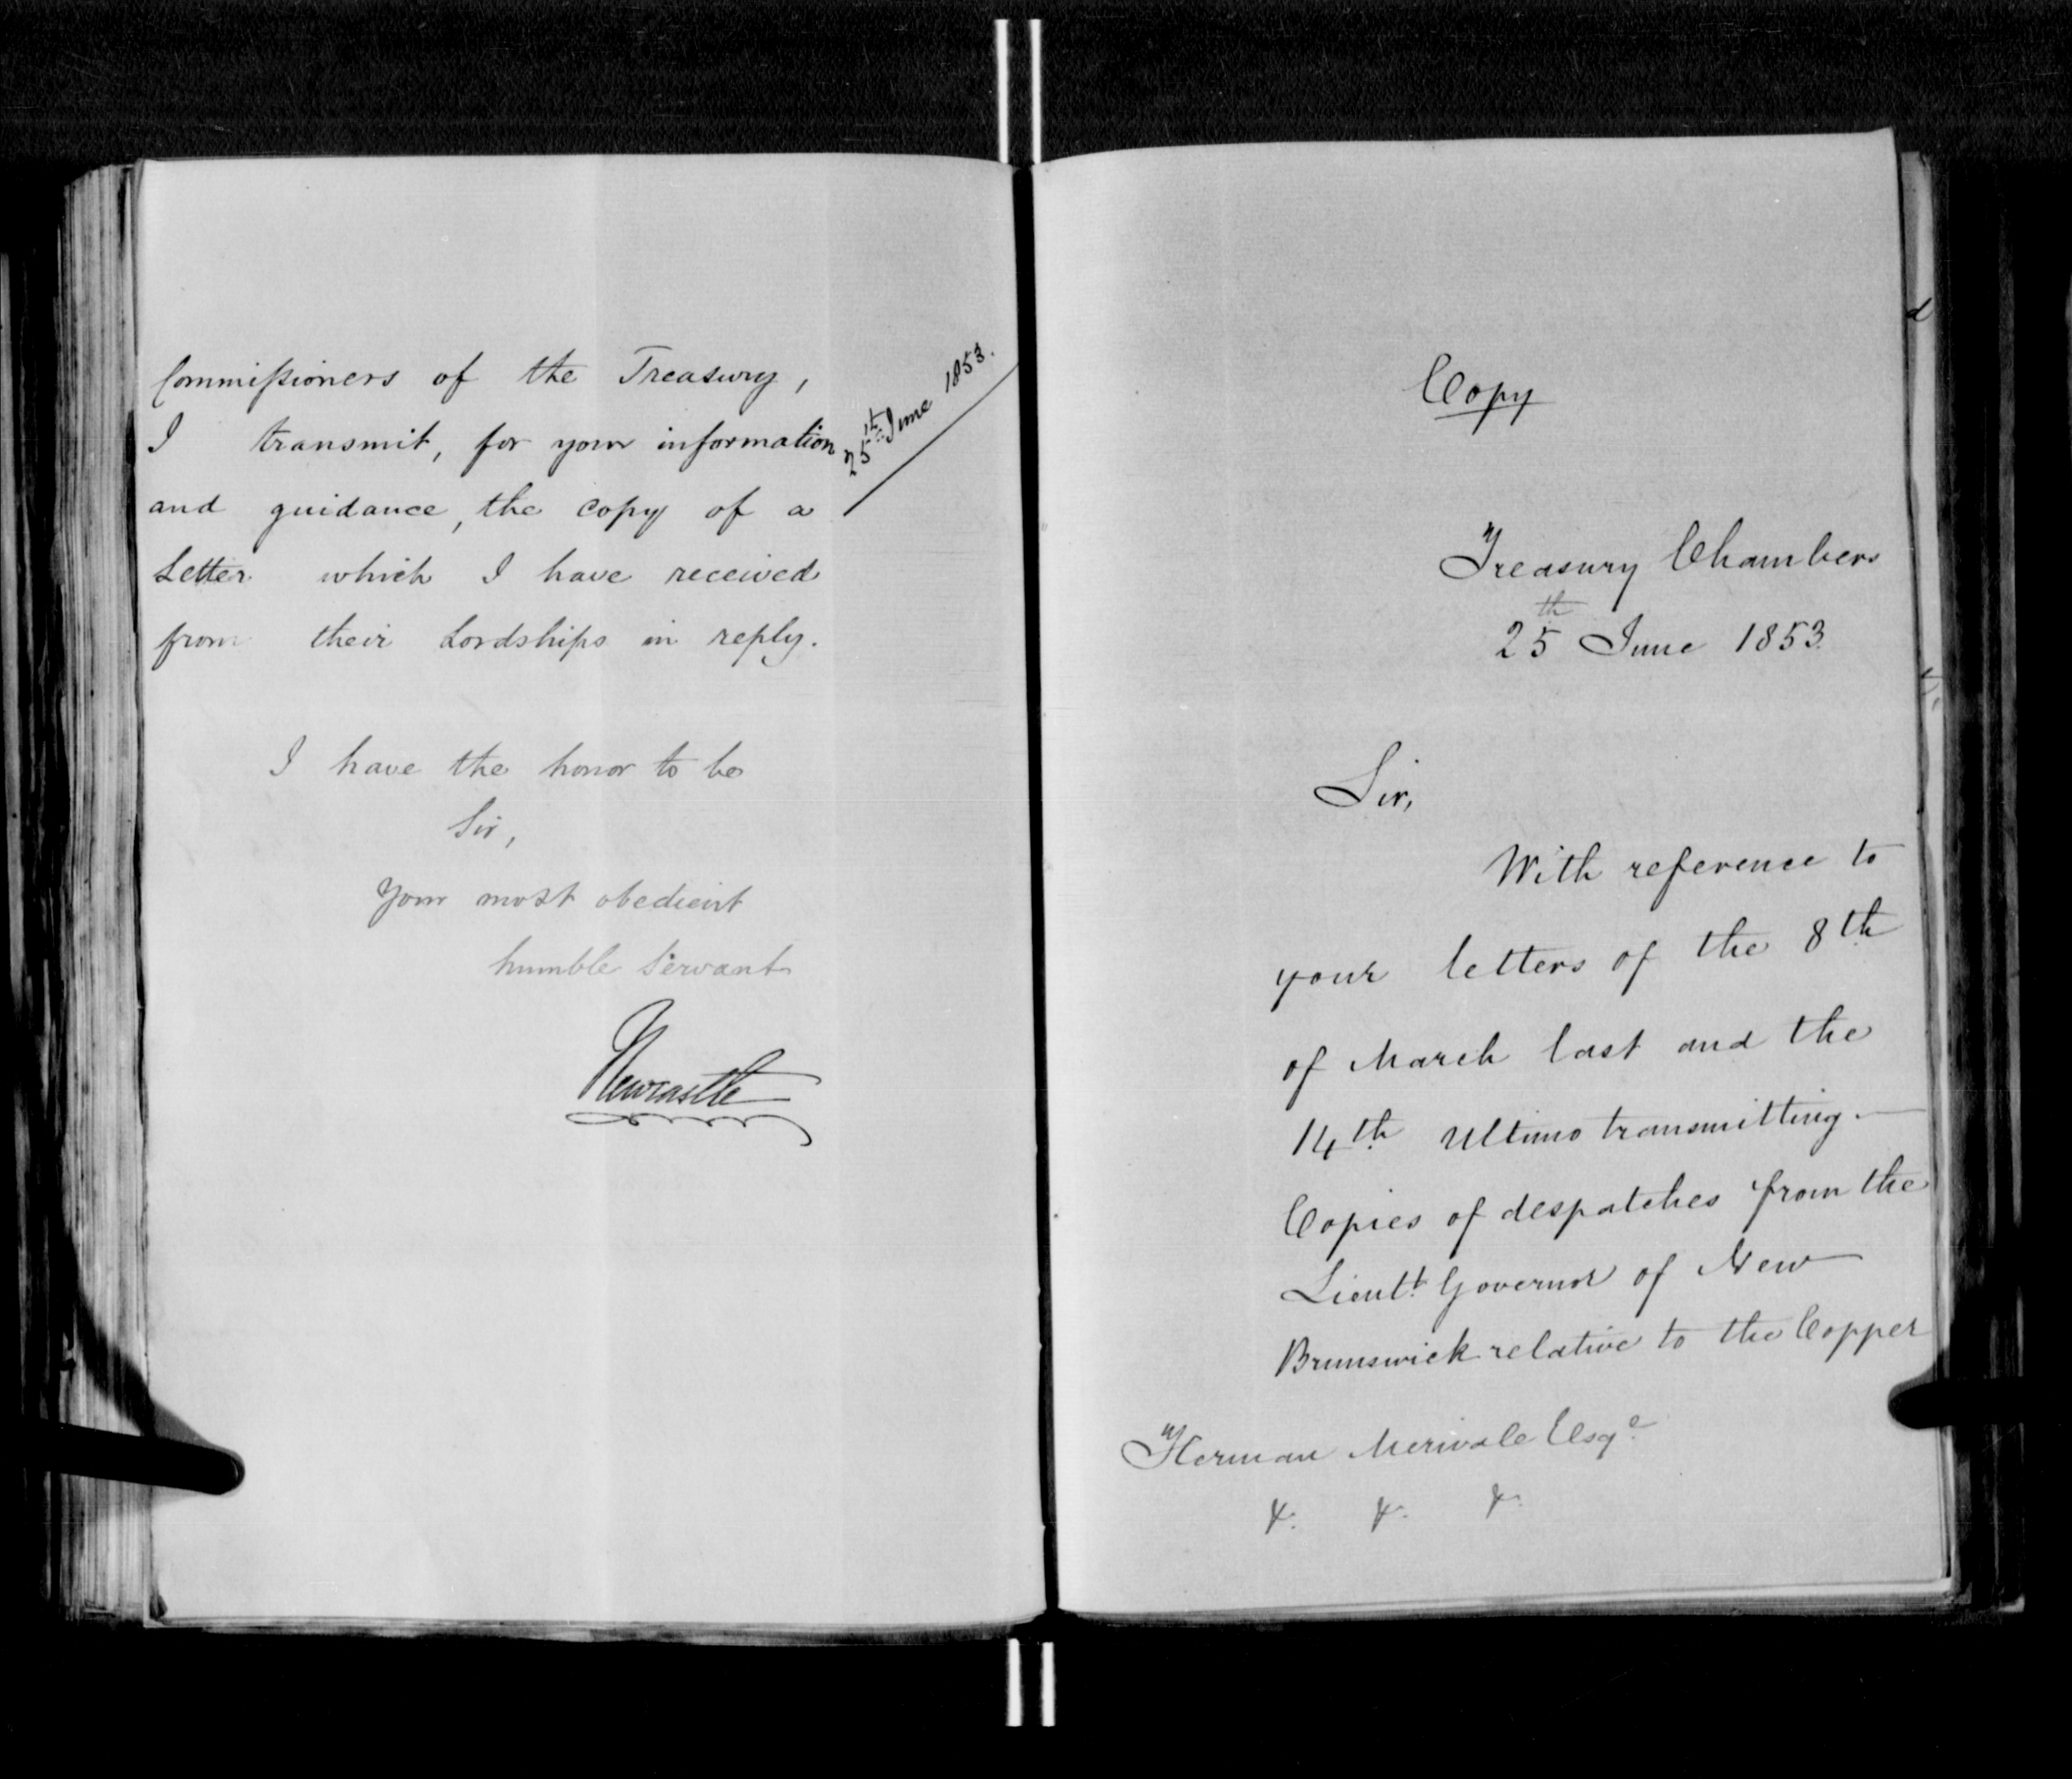 Commissioners of the Treasury,
I transmit, for your information
and guidance, the copy of a
Letter which I have received
from their Lordships in reply.
25th June 1853.
I have the honor to be
Sir,
Your most obedient
humble Servant
Newcastle
Copy
Treasury Chambers
25th June 1853.
Sir,
With reference to
your letters of the 8th
of March last and the
14th Ultimo transmitting
Copies of despatches from the
Lieutt Governor of New
Brunswick relative to the Copper
Herman Merivale Esqe
&. &. &.